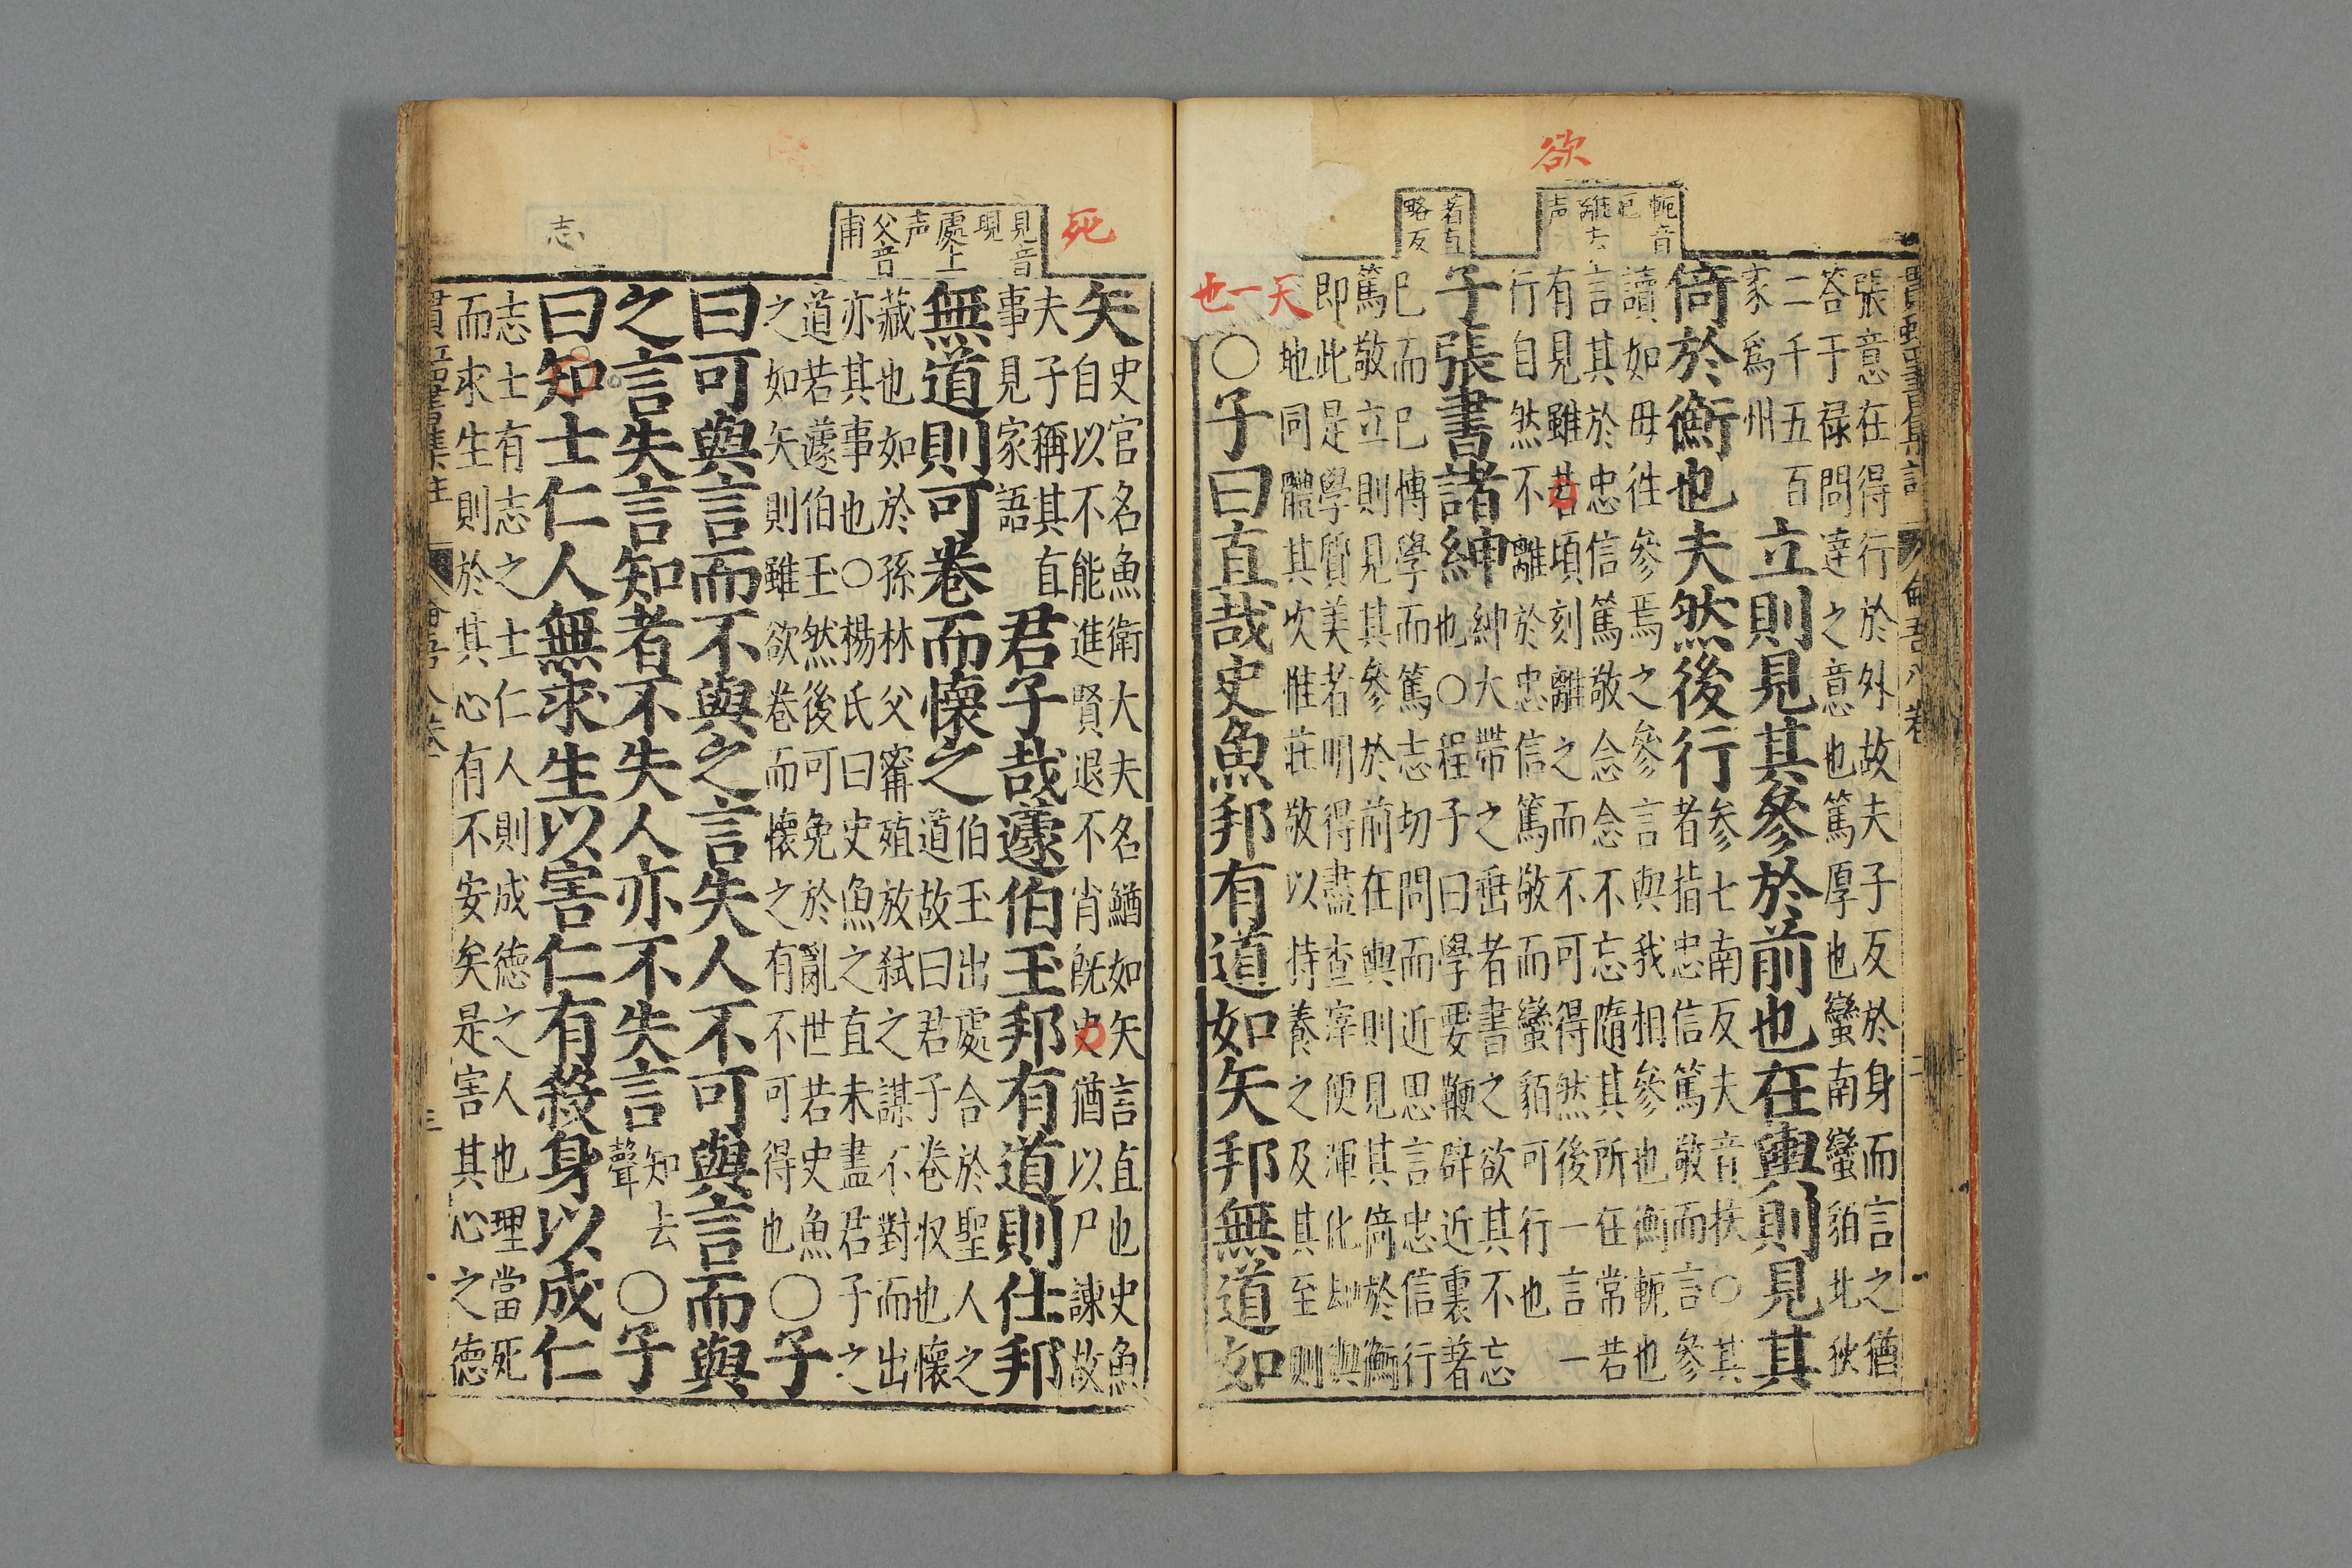 欲
軛音
厄
離去
声
著直
略反
張意在得行於外故夫子反於身而言之猶
答于禄問達之意也篤厚也蠻南蠻貊北狄
二千五百
家爲州
立則見其參於前也在輿則見其
倚於衡也夫然後行
參七南反夫音扶○其
者指忠信篤敬而言參
讀如毋徃參焉之參言與我相參也衡軛也
言其於忠信篤敬念念不忘隨其所在常若
有見雖若頃刻離之而不可得然後一言一
行自然不離於忠信篤敬而蠻貊可行也
子張書諸紳
紳大帶之垂者書之欲其不忘
也○程子曰學要鞭辟近裏著
已而已博學而篤志切問而近思言忠信行
篤敬立則見其參於前在輿則見其倚於衡
即此是學質美者明得盡查滓便渾化却與
天地同體其次惟莊敬以持養之及其至則
一也
○子曰直哉史魚邦有道如矢邦無道如
死
見音
現
處上
声
父音
甫
志
矢
史官名魚衛大夫名鰌如矢言直也史魚
自以不能進賢退不肖既死猶以尸諫故
夫子稱其直
事見家語
君子哉蘧伯玉邦有道則仕邦
無道則可卷而懷之
伯玉出處合於聖人之
道故曰君子卷収也懷
藏也如於孫林父甯殖放弑之謀不對而出
亦其事也○楊氏曰史魚之直未盡君子之
道若蘧伯玉然後可免於亂世若史魚
之如矢則雖欲卷而懷之有不可得也
○子
曰可與言而不與之言失人不可與言而與
之言失言知者不失人亦不失言
知去
聲
○子
曰志士仁人無求生以害仁有殺身以成仁
志士有志之士仁人則成德之人也理當死
而求生則於其心有不安矣是害其心之德